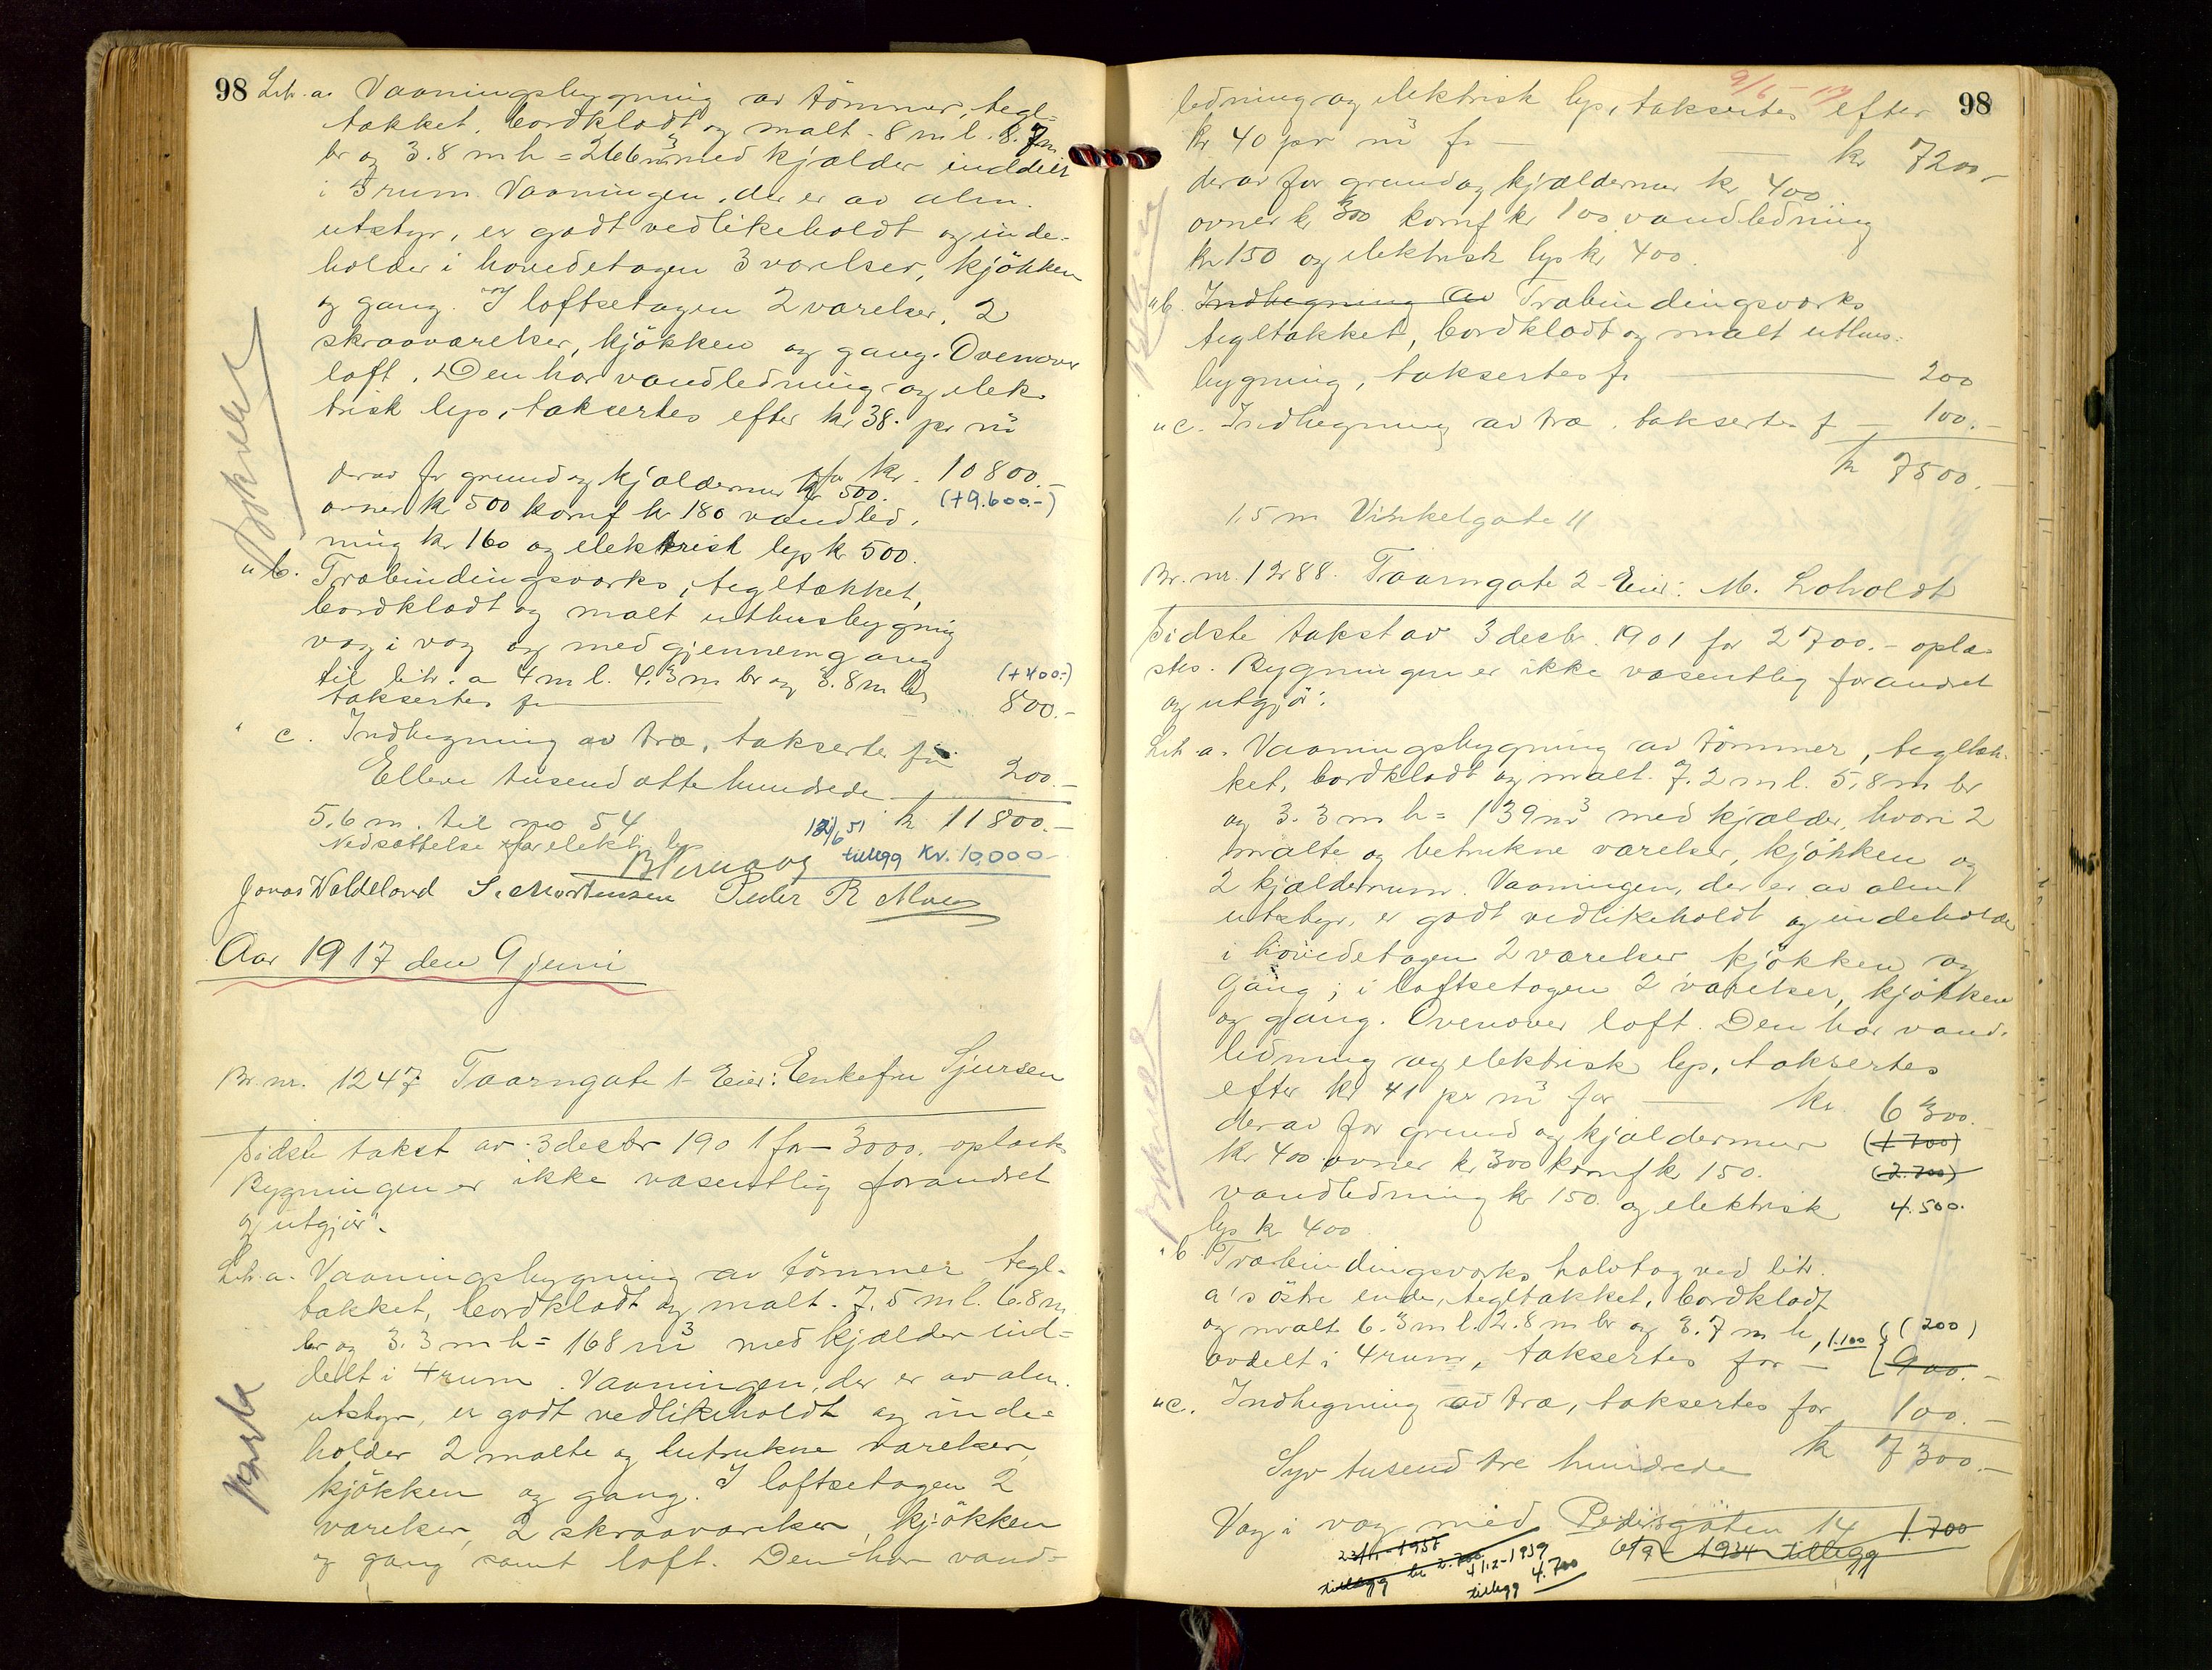 98 Litr. a. Vaaningsbygning av tømmer, tegl-
tækket, bordklædt og malt. 8 m l. 8.7 m
br og 3.8 m h = 266 m³ med kjælder inddelt
i 3 rum. Vaaningen, der er av alm.
utstyr, er godt vedlikeholdt og inde-
holder i hovedetagen 3 værelser, kjøkken
og gang. I loftsetagen 2 værelser, 2
skraaværelser, kjøkken og gang. Ovenover
loft. Den har vandledning og elek-
trisk lys, taksertes efter kr 38. pr m³
for kr. 10800.-
derav for grund og kjældermur kr 500. (+9.600.-)
ovner kr 500 komf kr 180 vandled-
ning kr 160 og elektrisk lys kr 500.
" b. Træbindingsværks, tegltækket,
bordklædt og malt uthusbygning
væg i væg og med gjennemgang
til litr. a 4 m l. 4.3 m br og 3.8 m h (+400.-)
taksertes for 800.-
" c. Indhegning av træ, taksertes for 200.-
Elleve tusend otte hundrede kr 11800.-
5,6 m. til no 54
Nedsættelse for elektr. lys 12/6 51
tillegg Kr. 10,000-
Jonas Waldeland S. Mortensen Peder R. Moe
Aar 1917 den 9 juni
Br. nr. 1247 Taarngate 1 - Eier: Enkefru Sjursen
Sidste takst av 3 decbr 1901 for 3000. oplæstes
Bygningen er ikke væsentlig forandret
og utgjør:
Litr. a. Vaaningsbygning av tømmer, tegl-
tækket, bordklædt og malt. 7,5 m l. 6.8 m
br og 3.3 m h = 168 m³ med kjælder ind-
delt i 4 rum. Vaaningen, der er av alm.
utstyr, er godt vedlikeholdt og inde-
holder 2 malte og betrukne værelser,
kjøkken og gang. I loftsetagen 2
værelser, 2 skraaværelser, kjøkken
og gang samt loft. Den har vand-
9/6-17
98
ledning og elektrisk lys, taksertes efter
kr 40 pr m³ for - kr 7200.-
derav for grund og kjældermur kr 400
ovner kr 300 komf kr 100 vandledning
kr 150 og elektrisk lys kr 400.
" b. Indhegning av Træbindingsværks
tegltækket, bordklædt og malt uthus-
bygning, taksertes for 200
" c. Indhegning av træ, taksertes f - 100.-
kr 7500.-
1.5 m Vinkelgate 11
Br. nr. 1288. Taarngate 2 - Eier: M. Loholdt
Sidste takst av 3 decbr. 1901 for 2700.- oplæ-
stes. Bygningen er ikke væsentlig forandret
og utgjør:
Litr a. Vaaningsbygning av tømmer, tegltæk-
ket, bordklædt og malt. 7.2 m l. 5,8 m br
og 3.3 m h = 139 m³ med kjælder, hvori 2
malte og betrukne værelser, kjøkken og
2 kjælderrum. Vaaningen, der er av alm
utstyr, er godt vedlikeholdt og indeholder
i hovedetagen 2 værelser kjøkken og
gang; i loftsetagen 2 værelser, kjøkken
og gang. Ovenover loft. Den har vand-
ledning og elektrisk lys, taksertes
efter kr 41 pr m³ for kr. 6300.-
derav for grund og kjældermur (1700)
kr 400 ovner kr 300 komf kr 150. (2.700)
vandledning kr 150. og elektrisk 4.500.
lys kr 400
" b. Træbindingsværks halvtag ved litr.
a's østre ende, tegltækket, bordklædt
og malt 6.3 m l. 2.8 m br og 3.7 m h, 1.100 (200)
avdelt i 4 rum, taksertes for - 900.-
" c. Indhegning av træ, taksertes for 100.-
Syv tusend tre hundrede kr 7300.-
Væg i væg med Pedersgaten 14 1.700
6/9 - 1934 tillegg
1938
tillegg kr 2.700
4/12-1939
tillegg 4.700